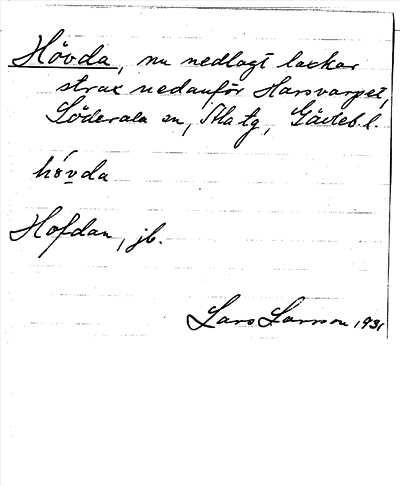 Hövda, nu nedlagt laxkar
strax nedanför Harsvarpet,
Söderala sn, Ala tg, Gävleb. l.
hó̱vda
Hofdan, jb.
Lars Larsson 1931